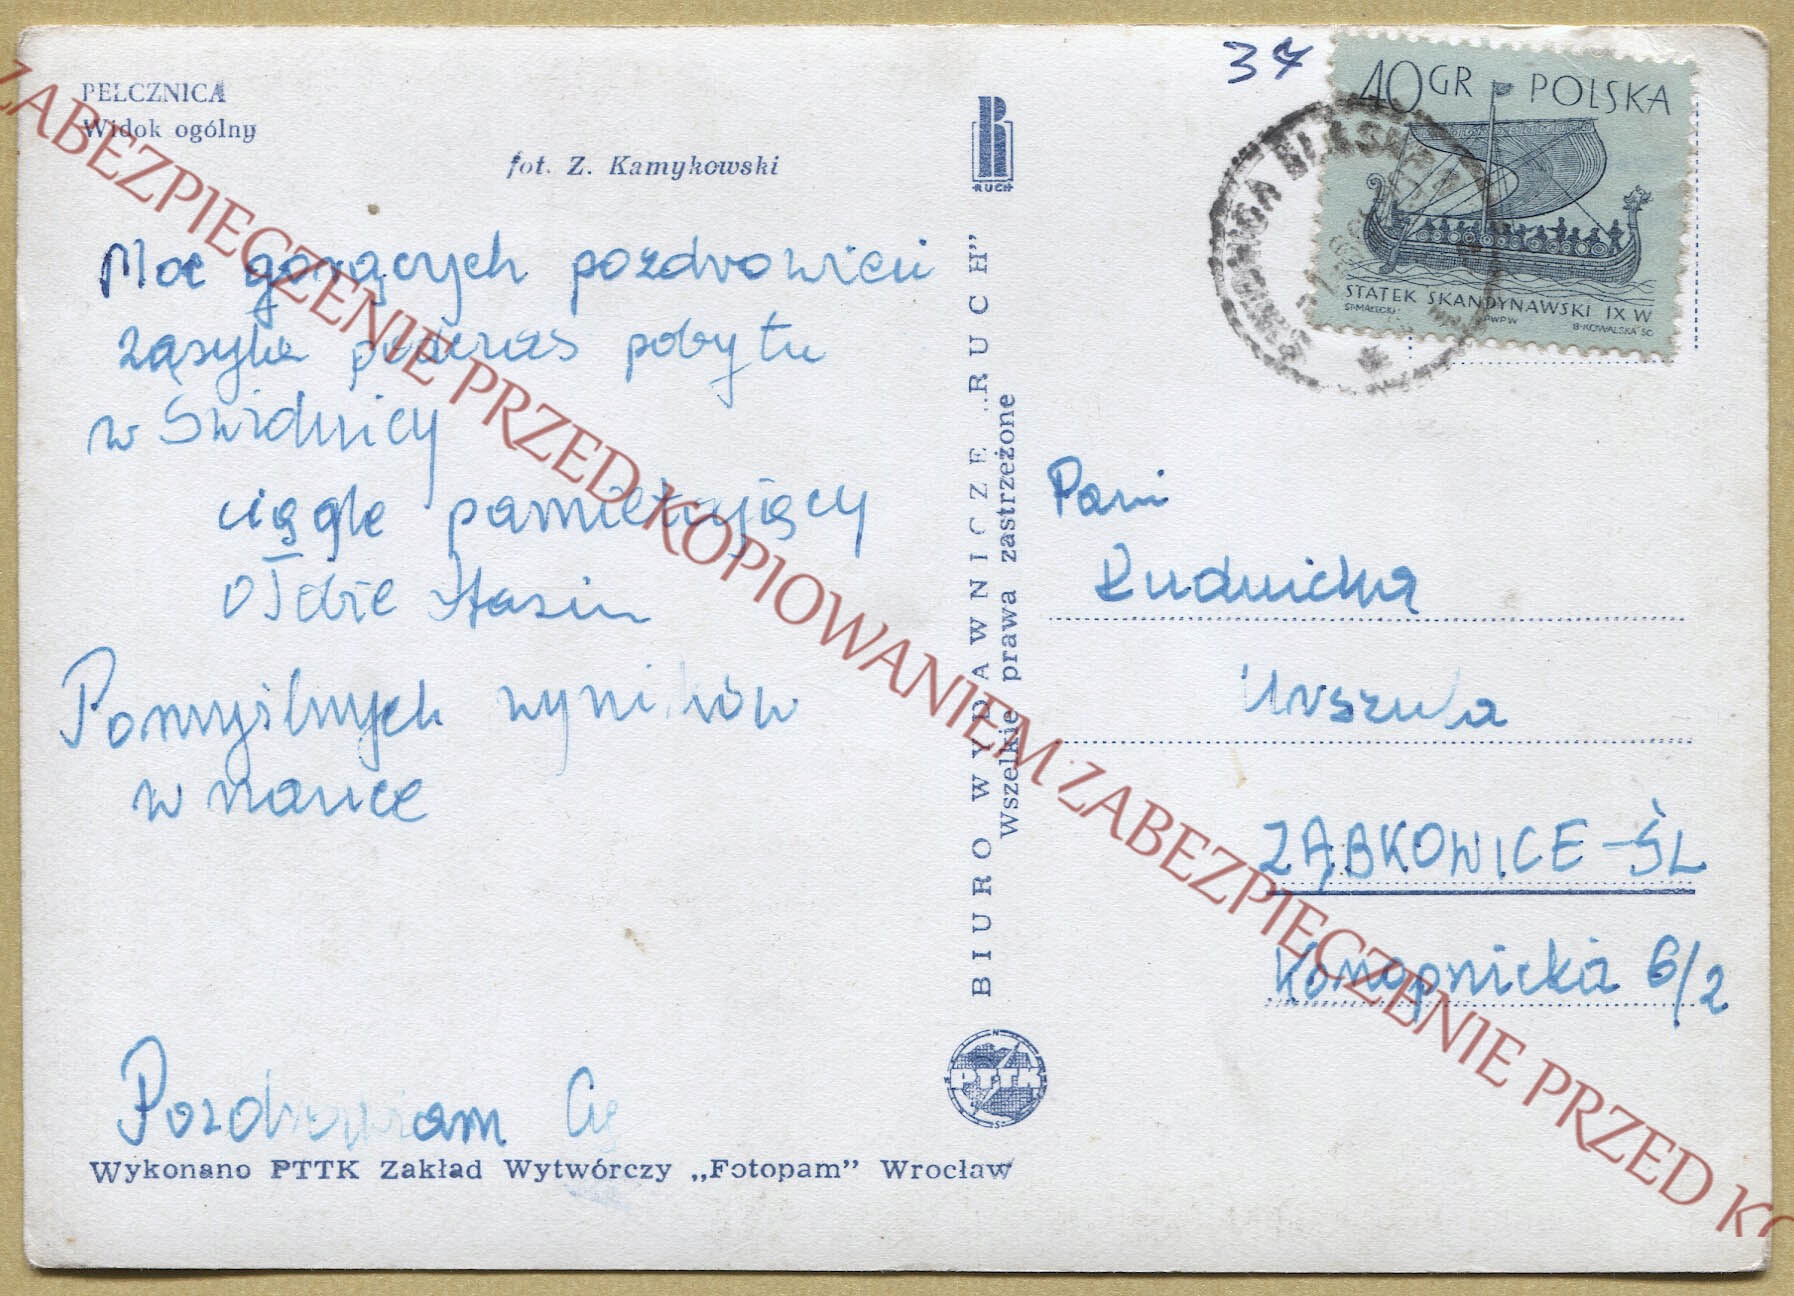 PELCZNICA
Widok ogólny
fot. Z. Kamykowski
Moc gorących pozdrowień
zasyła podczas pobytu
w Świdnicy
ciągle pamiętający
Pomyślnych wyników
w nauce
Pozdrawiam Cię
Wykonano PTTK Zakład Wytwórczy „Fotopam” Wrocław
RUCH
BIURO WYDAWNICZE „RUCH”
Wszelkie prawa zastrzeżone
PTTK
37
40 GR POLSKA
STATEK SKANDYNAWSKI IX W
ST. MAŁECKI PWPW B. KOWALSKA SC.
Pani
Urszula
ZĄBKOWICE-ŚL
Konopnicka 6/2
ZABEZPIECZENIE PRZED KOPIOWANIEM ZABEZPIECZENIE PRZED KO